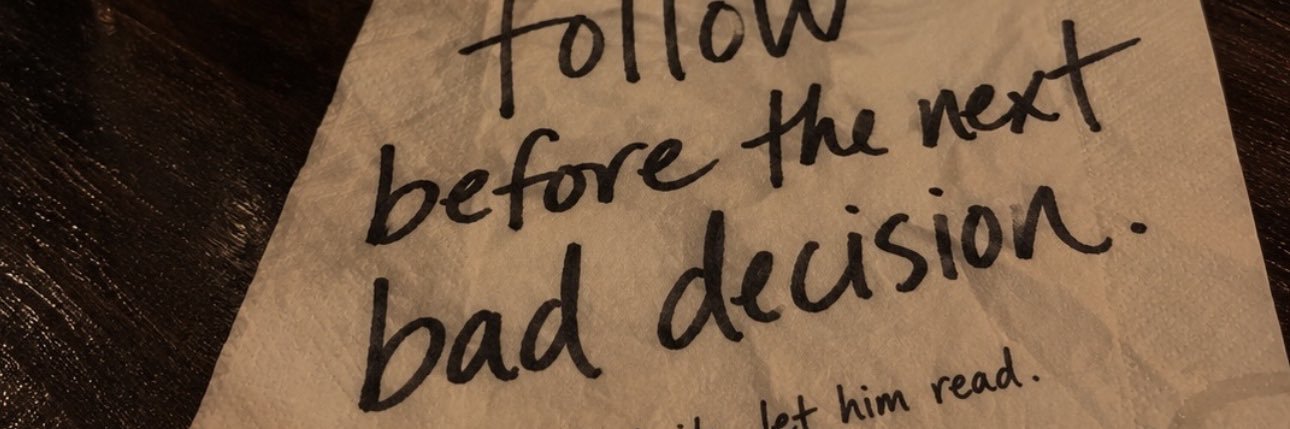 follow
before the next
bad decision.
let him read.